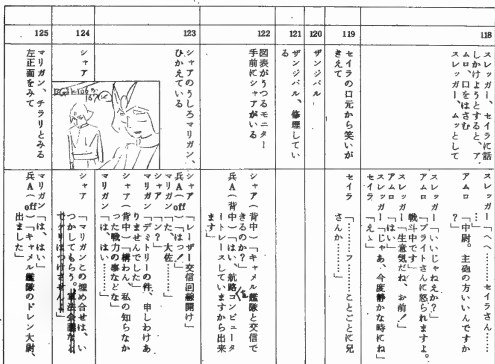 118
スレッガー、セイラに話
しかけようとすると、ア
ムロ口をはさむ
スレッガー、ムッとして
スレッガー「へへ……セイラさん……」
アムロ「中尉。主砲の方いいんですか
?」
スレッガー「いいじゃねえか?」
アムロ「ブライトさんに怒られますよ。
戦斗中です」
スレッガー「生意気だね、お前!」
アムロ「はい」
スレッガー「じゃあ、今度静かな時にね」
セイラ「えゝ」
119
セイラの口元から笑いが
きえて
セイラ「フッフフ……ことごとに兄
さんか……」
120
ザンジバル
121
ザンジバル、修理してい
る
122
図表がうつるモニター
手前にシャアがいる
シャア(背中)「キャメル艦隊と交信で
きるのか?」
兵A(背中)「はい、航路コンピュータ
ートレースしていますから出来
ます」
123
シャアのうしろマリガン、
ひかえている
シャア「レーザー交信回線開け」
兵A(off)「はっ!」
マリガン「た、大佐……」
シャア「ン?」
マリガン「デミトリーの件、申しわけあ
りませんでした」
シャア(背中)「構わん。私の知らなか
った戦力の事などな」
マリガン「は、はい……」
124
シャア
シャア「マリガン、この埋め合せは、い
つかしてもらう。軍法会議など
でケリはつけさせん」
125
マリガン、チラリとみる
左正面をみて
マリガン「は、はい」
兵A(off)「キャメル艦隊のドレン大尉、
出ました」